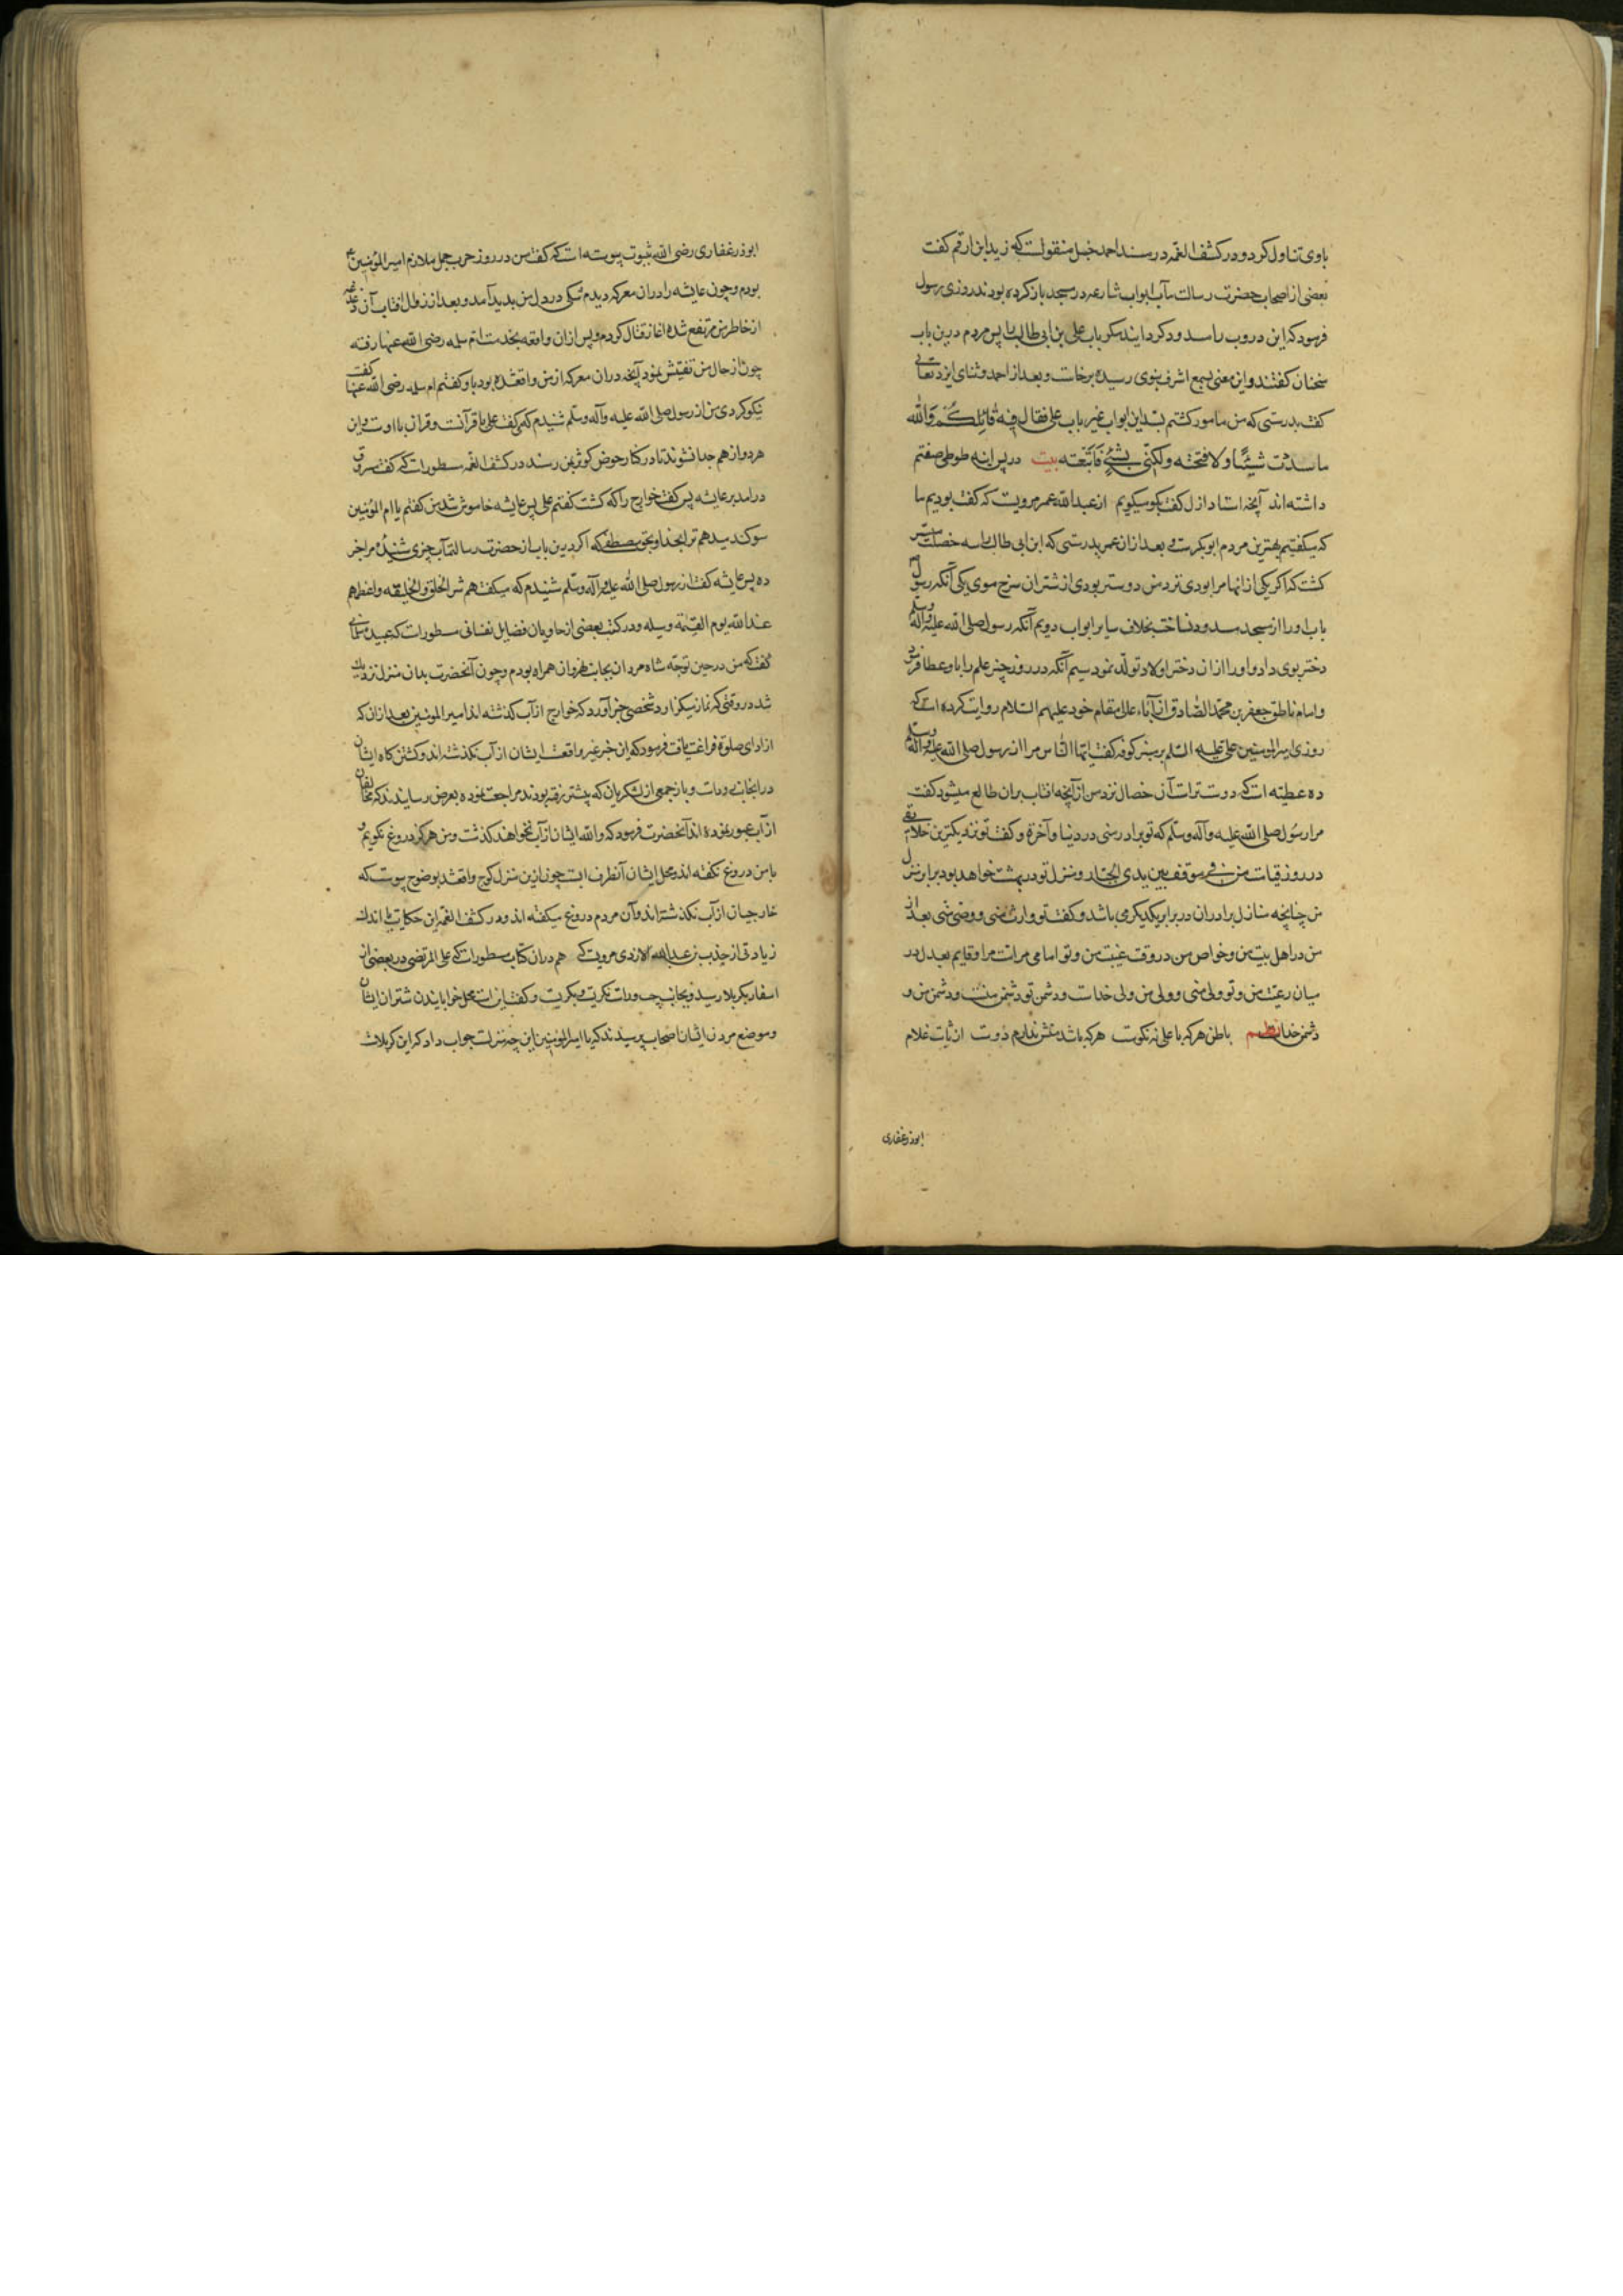 باوی تناول کرد و در کشف الغمه در مسند احمد حنبل منقولست که زید ابن ارقم کفت
بعضی از اصحاب حضرت رسالت مآب ابواب شارعه در مسجد باز کرده بودند روزی رسول
فرمود که این دروب را مسدود کردانید مکر باب علی بن ابی طالب را پس مردم درین باب
سخنان کفتند و این معنی بسمع اشرف نبوی رسیده برخاست و بعد از احمد و ثنای ایزد تعالی
کفت بدرستی که من مامور کشتم بسد این ابواب غیر باب علی فقال فیه قائلکم و الله
ما سددت شیئا و لا فتحته و لکنی بشیء فاتبعته بیت در پس اینه طوطی صفتم
داشته اند آنچه استاد ازل کفت بکو میکویم از عبدالله عمر مرویست که کفت بودیم ما
که میکفتیم بهترین مردم ابوبکرست و بعد ازان عمر بدرستی که ابن ابی طالب را سه خصلت میسر
کشت که اکر یکی از انها مرا بودی نزد من دوستر بودی از شتران سرخ موی یکی آنکه رسول
باب او را از مسجد مسدود نساخت بخلاف سایر ابواب دویم آنکه رسول صلی الله علیه وآله وسلم
دختر بوی داد و او را ازان دختر اولاد تولد نمود سیم آنکه در روز خیبر علم را باو عطا فرمود
و امام ناطق جعفر بن محمد الصادق از آباء عالی مقام خود علیهم السلام روایت کرده است که
روزی امیرالمومنین علی علیه السلم بر منبر کوفه کفت ایها الناس مرا از رسول صلی الله علیه وآله وسلم
ده عطیه است که دوستر است آن خصال نزد من از آنچه افتاب بران طالع میشود کفت
مرا رسول صلی الله علیه وآله وسلم که تو برادر منی در دنیا و آخرة و کفت تو نزدیکترین خلایقی
در روز قیامت من فی موقف بین یدی الجبار و منزل تو در بهشت خواهد بود برابر منزل
من چنانچه منازل برادران در برابر یکدیکر می باشد و کفت تو وارث منی و وصی منی بعد از
من در اهل بیت من و خواص من در وقت غیبت من و تو امامی مر امت مرا و قایم بعدل در
میان رعیت من و تو ولی منی و ولی من ولی خداست و دشمن تو دشمن منست و دشمن من
دشمن خدا نظم باطن هرکه با علی نه نکوست هرکه باشد منش ندارم دوست
ابوذر غفاری
ابوذر غفاری رضی الله بثبوت پیوسته است که کفت من در روز حرب جمل ملازم امیرالمؤمنین
بودم و چون عایشه را دران معرکه دیدم شکی در دل من پدید آمد و بعد از زوال افتاب آن دغدغه
از خاطر من مرتفع شده اغاز قتال کردم و پس ازان واقعه بخدمت ام سلمه رضی الله عنها رفته
چون از حال من تفتیش نمود آنچه دران معرکه از من واقعشده بود باو کفتم ام سلمه رضی الله عنها کفت
نیکو کردی من از رسول صلی الله علیه وآله وسلم شنیدم که می کفت علی با قرآنست و قران با اوست و این
هر دو از هم جدا نشوند تا در کنار حوض کوثر بمن رسند در کشف الغمه مسطورست که کفت مسروق
درامد بر عایشه پس کفت خوارج را که کشت کفتم علی پس عایشه خاموش شد من کفتم یا ام المؤمنین
سوکند میدهم ترا بخدا و بحق مصطفی که اکر درین باب از حضرت رسالتمآب چیزی شنیدهٔ مرا خبر
ده پس عایشه کفت از رسول صلی الله علیه وآله وسلم شنیدم که میکفت هم شر الخلق والخلیقه و اعظمهم
عند الله یوم القیمة وسیله و در کتب بعضی از حاویان فضایل نفسانی مسطورست که عبیده سلمانی
کفت که من در حین توجه شاه مردان بجانب نهروان همراه بودم و چون آنحضرت بدان منزل نزدیک
شد در وقتی که نماز میکزارد شخصی خبر آورد که خوارج از آب کذشته اند امیرالمومنین بعد ازان که
از ادای صلوة فراغت یافت فرمود که این خبر غیر واقعست ایشان از آب نکذشته اند و کشتن کاه ایشان
در اینجانب رودست و باز جمعی از لشکریان که پیشتر رفته بودند مراجعت نموده بعرض رسانیدند که مخالفان
از آب عبور نموده اند آنحضرت فرمود که والله ایشان از آب نخواهند کذشت و من هرکز دروغ نکویم و
با من دروغ نکفته اند و محل ایشان آنطرف ابست چون ازین منزل کوچ واقعشد بوضوح پیوست که
خارجیان از آب نکذشته اند و آن مردم دروغ میکفته اند و در کشف الغمه این حکایت با اندک
زیادتی از جندب بن عبدالله الازدی مرویست که هم دران کتاب مسطورست که علی المرتضی در بعضی از
اسفار بکربلا رسید و بجانب چپ و راست نکریست و بکریست و کفت این است محل خوابانیدن شتران ایشان
و موضع مردن ایشان اصحاب پرسیدند که یا امیرالمؤمنین این چه منزلست جواب داد که این کربلاست